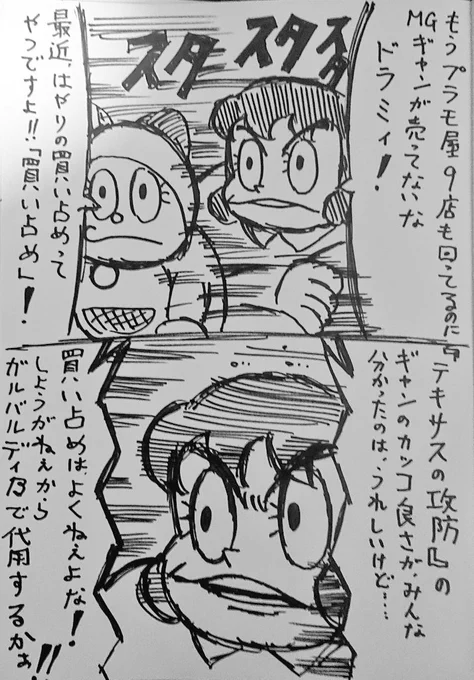 もうプラモ屋9店も回ってるのに
MGギャンが売ってないな
ドラミィ!
スタ
スタ
スタ
最近、はやりの買い占めって
やつですよ!!「買い占め」!
『テキサスの攻防』の
ギャンのカッコ良さがみんな
分かったのは、うれしいけど……
買い占めは、よくねぇよな!
しょうがねぇから
ガルバルディβで代用するかぁ!!